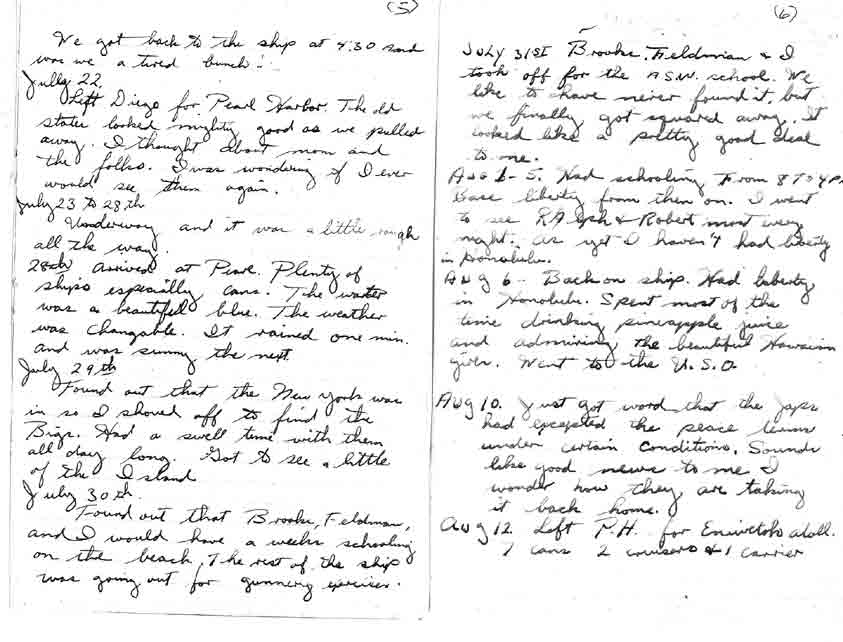 (5)
We got back to the ship at 4:30 and
was we a tired bunch!
July 22.
Left Diego for Pearl Harbor. The old
states looked mighty good as we pulled
away. I thought about mom and
the folks. I was wondering if I ever
would see them again.
July 23 to 28th
Underway and it was a little rough
all the way.
28th arrived at Pearl. Plenty of
ships especially cans. The water
was a beautiful blue. The weather
was changable. It rained one min.
and was sunny the next.
July 29th
Found out that the New York was
in so I shoved off to find the
Bigs. Had a swell time with them
all day long. Got to see a little
of the Island
July 30th.
Found out that Brooke, Feldman,
and I would have a weeks schooling
on the beach. The rest of the ship
was going out for gunnery exercises.
(6)
July 31st Brooke, Fieldman & I
took off for the A.S.W. school. We
like to have never found it, but
we finally got squared away. It
looked like a pretty good deal
to me.
Aug 1-5. Had schooling from 8 to 4 P.
Base liberty from then on. I went
to see Ralph & Robert most every
night. As yet I haven't had liberty
in Honolulu.
Aug 6- Back on ship. Had liberty
in Honolulu. Spent most of the
time drinking pineapple juice
and admiring the beautiful Hawaiian
girls. Went to the U.S.O.
Aug 10. Just got word that the japs
had excepted the peace terms
under certain conditions. Sounds
like good news to me I
wonder how they are taking
it back home.
Aug 12. Left P.H. for Eniwetok atoll.
7 cans 2 cruisers & 1 carrier